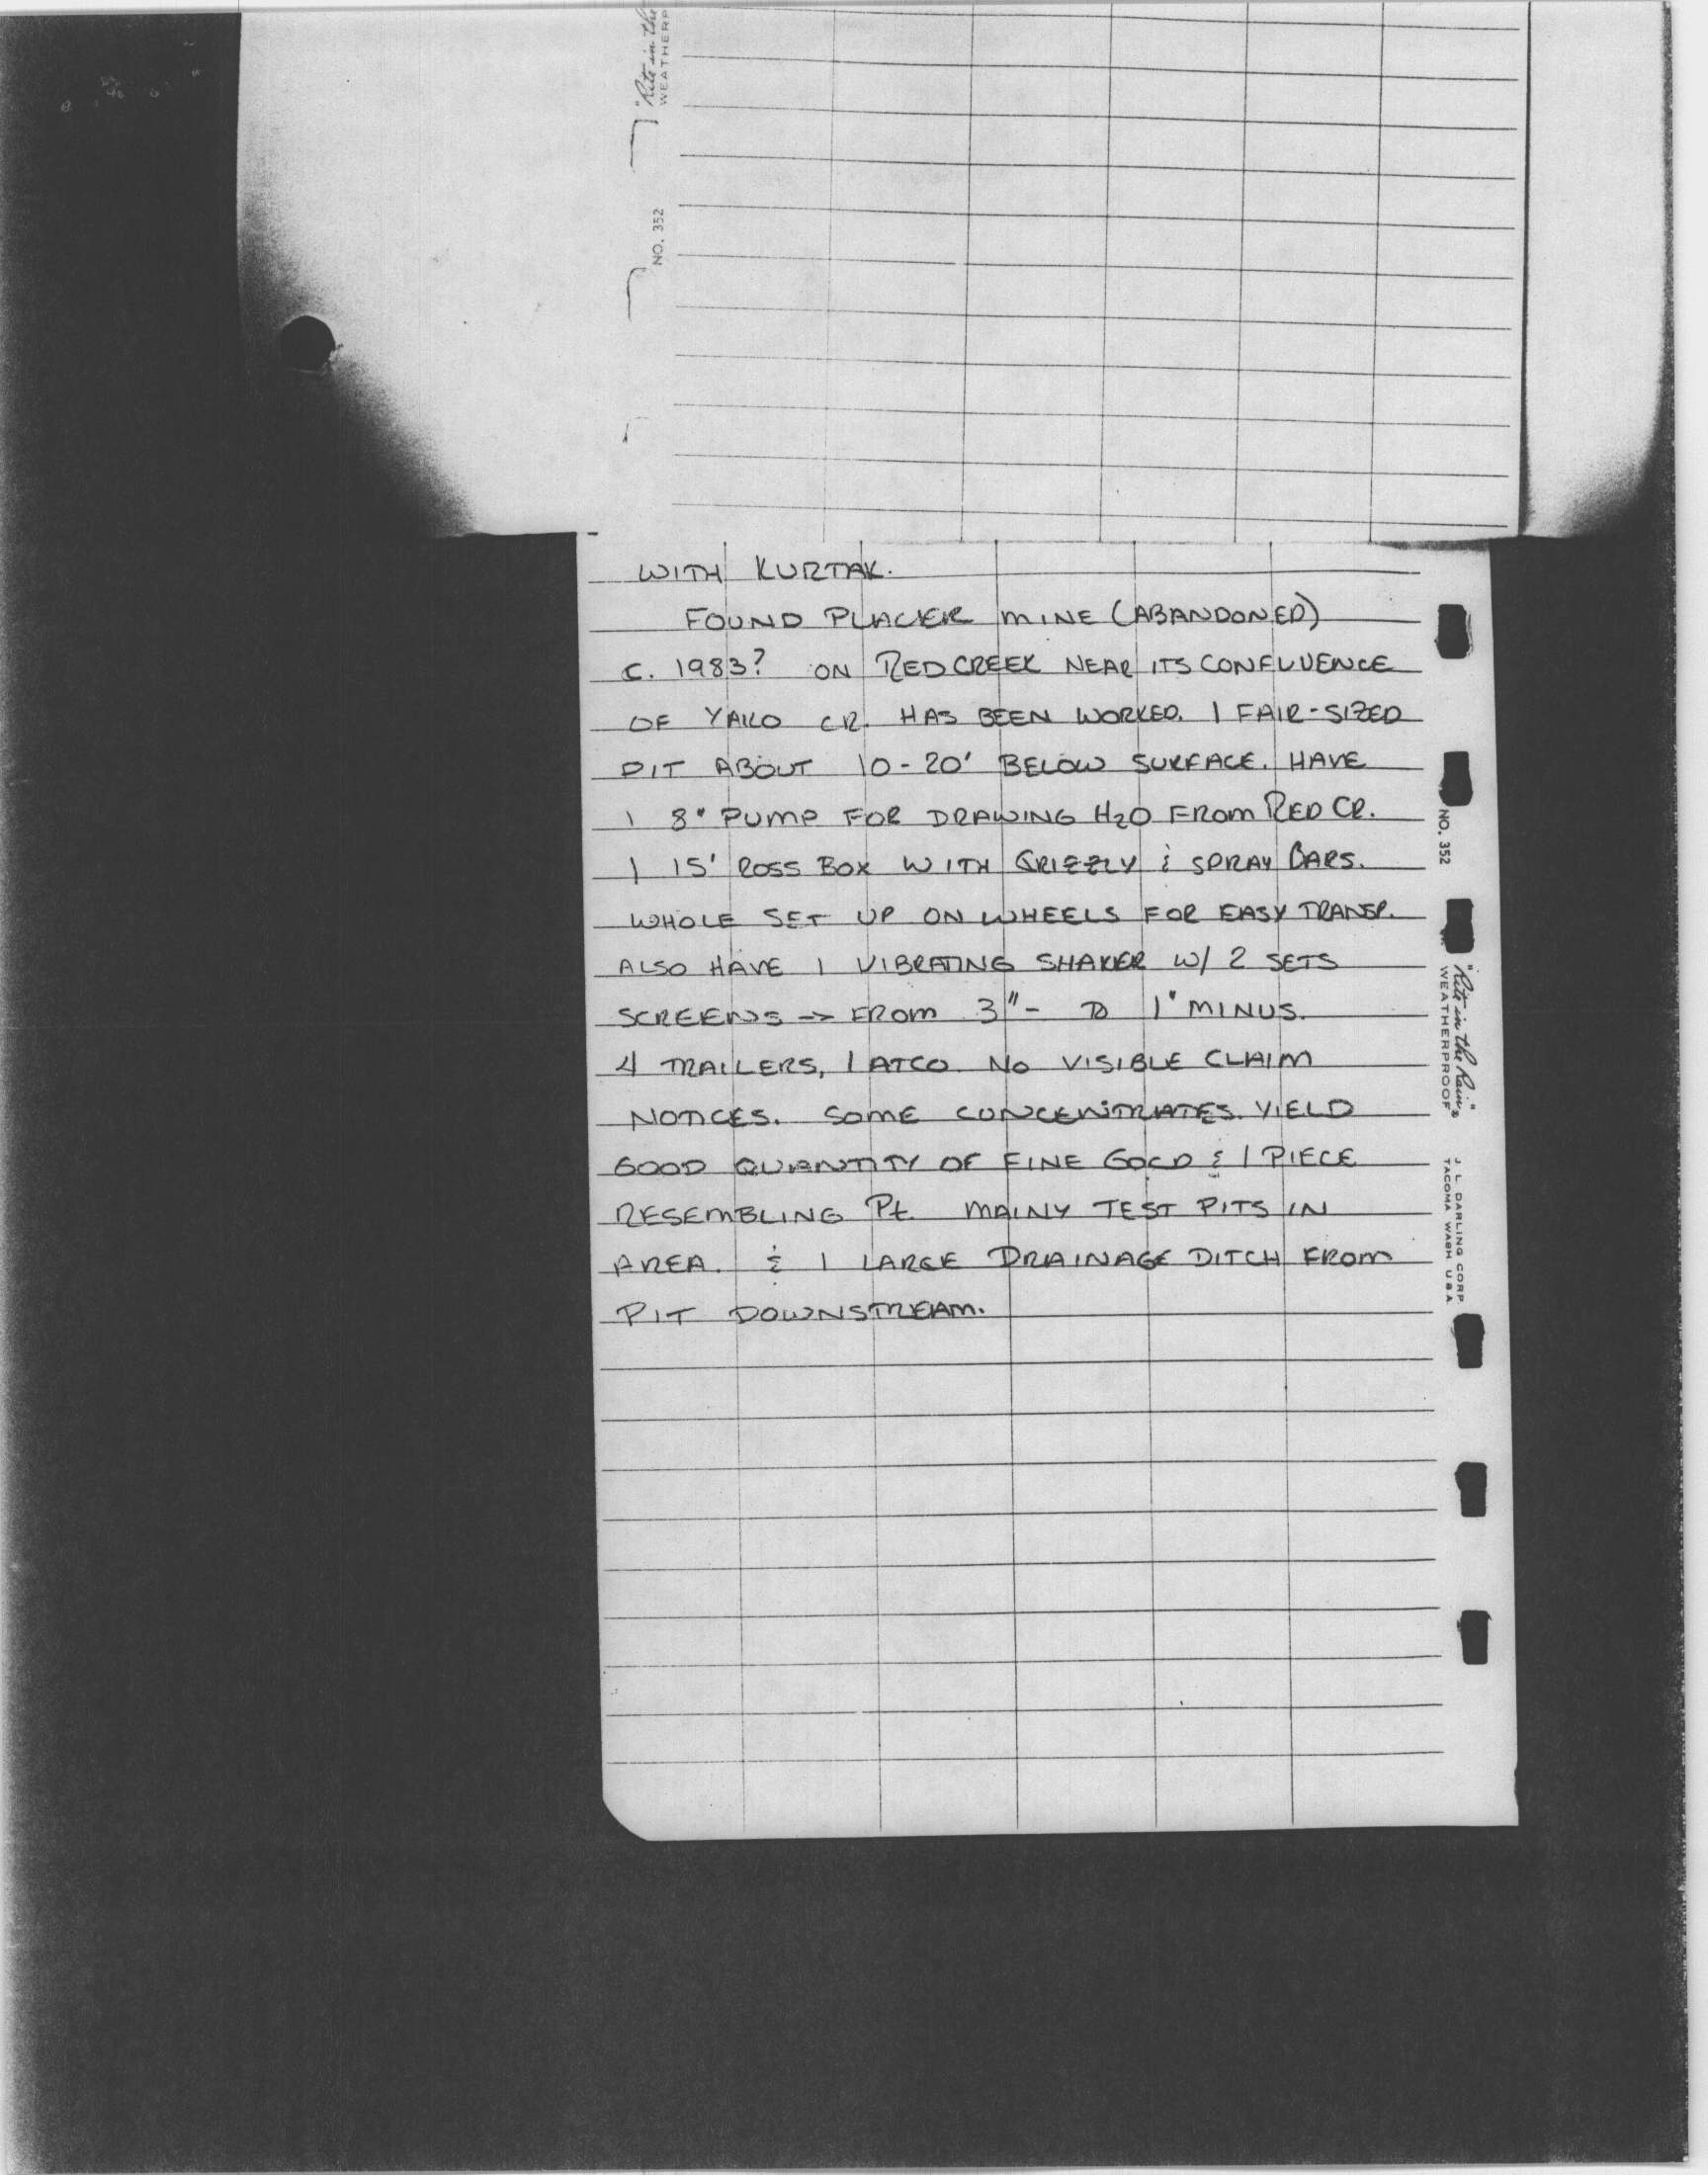 "Rite in the
WEATHERP
NO. 352
WITH KURTAK.
FOUND PLACER MINE (ABANDONED)
C. 1983? ON RED CREEK NEAR ITS CONFLUENCE
OF YAKO CR. HAS BEEN WORKED. 1 FAIR-SIZED
PIT ABOUT 10-20' BELOW SURFACE. HAVE
1 8" PUMP FOR DRAWING H2O FROM RED CR.
1 15' ROSS BOX WITH GRIZZLY & SPRAY BARS.
WHOLE SET UP ON WHEELS FOR EASY TRANSP.
ALSO HAVE 1 VIBRATING SHAKER W/ 2 SETS
SCREENS -> FROM 3"- TO 1" MINUS.
4 TRAILERS, 1 ATCO. NO VISIBLE CLAIM
NOTICES. SOME CONCENTRATES YIELD
GOOD QUANTITY OF FINE GOLD & 1 PIECE
RESEMBLING Pt. MAINY TEST PITS IN
AREA. & 1 LARGE DRAINAGE DITCH FROM
PIT DOWNSTREAM.
NO. 352
"Rite in the Rain"
WEATHERPROOF
J. L. DARLING CORP
TACOMA WASH U S A